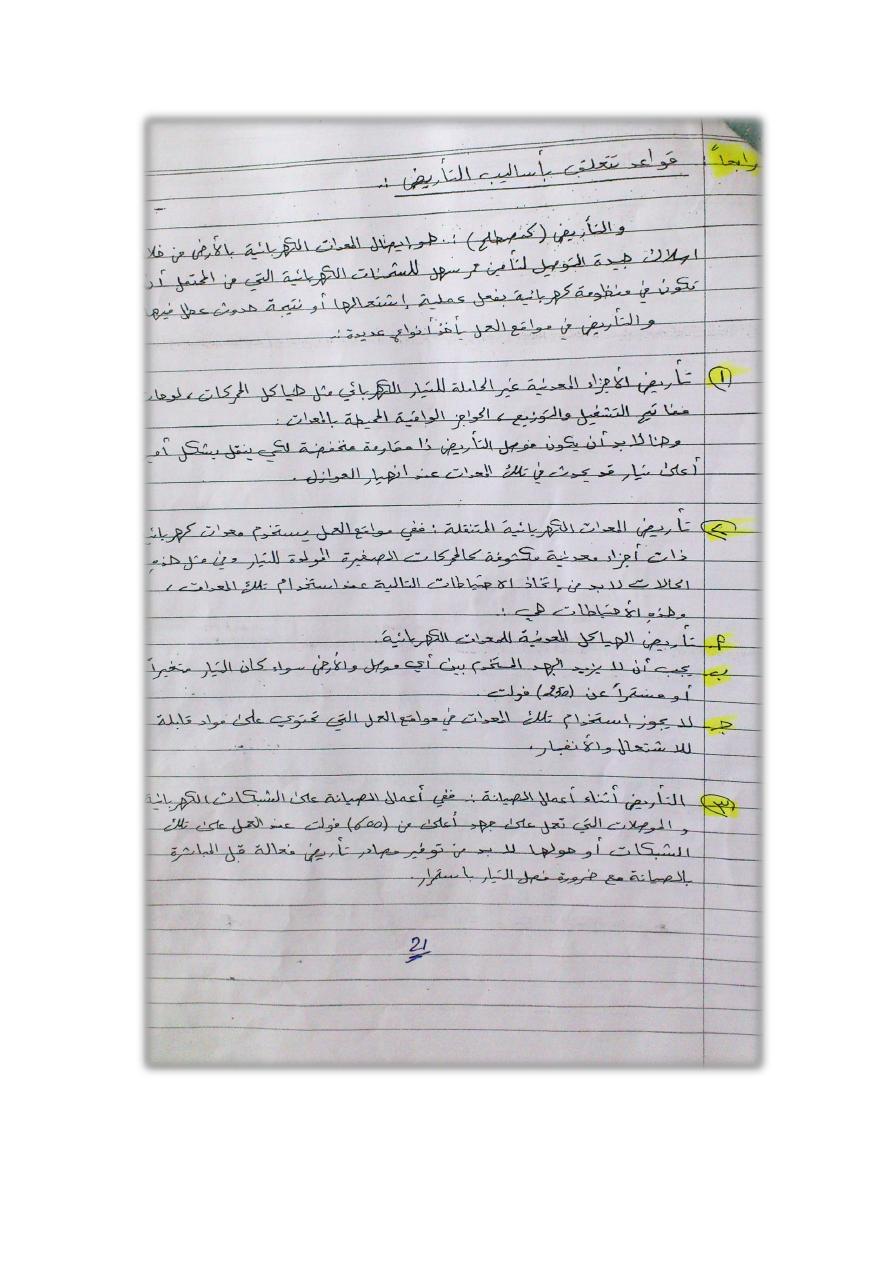 رابعاً : قواعد تتعلق بأساليب التأريض :.
والتأريض (كمصطلح) :. هو ايصال المعدات الكهربائية بالأرض من خلا
اسلاك جيدة التوصيل لتأمين ممر سهل للشحنات الكهربائية التي من المحتمل أن
تكون في منظومة كهربائية بفعل عملية إشتعالها أو نتيجة حدوث عطل فيها
والتأريض في مواقع العمل يأخذ أنواع عديدة :.
١ تأريض الأجزاء المعدنية غير الحاملة للتيار الكهربائي مثل هياكل المحركات ، لوحات
مفاتيح التشغيل والتوزيع ، الحواجز الواقية المحيطة بالمعدات .
وهنا لا بد أن يكون موصل التأريض ذا مقاومة منخفضة لكي ينقل بشكل
أعلى تيار قد يحدث في تلك المعدات عند انهيار العوازل .
٢ تأريض المعدات الكهربائية المتنقلة : ففي مواقع العمل يستخدم معدات كهربائي
ذات أجزاء معدنية مكشوفة كالمحركات الصغيرة المولدة للتيار وفي مثل هذه
الحالات لا بد من إتخاذ الاحتياطات التالية عند استخدام تلك المعدات ،
وهذه الأحتياطات هي :.
أ- تأريض الهياكل المعدنية للمعدات الكهربائية .
ب- يجب أن لا يزيد الجهد المستخدم بين أي موصل والأرض سواء كان التيار متغيراً
أو مستقراً عن (250) فولت .
جـ- لا يجوز إستخدام تلك المعدات في مواقع العمل التي تحتوي على مواد قابلة
للاشتعال والأنفجار .
٣ التأريض أثناء أعمال الصيانة :. ففي أعمال الصيانة على الشبكات الكهربائية
و الموصلات التي تعمل على جهد أعلى من (600) فولت عند العمل على تلك
الشبكات أو حولها لا بد من توفير مصادر تأريض فعالة قبل المباشرة
بالصيانة مع ضرورة فصل التيار باستمرار .
21